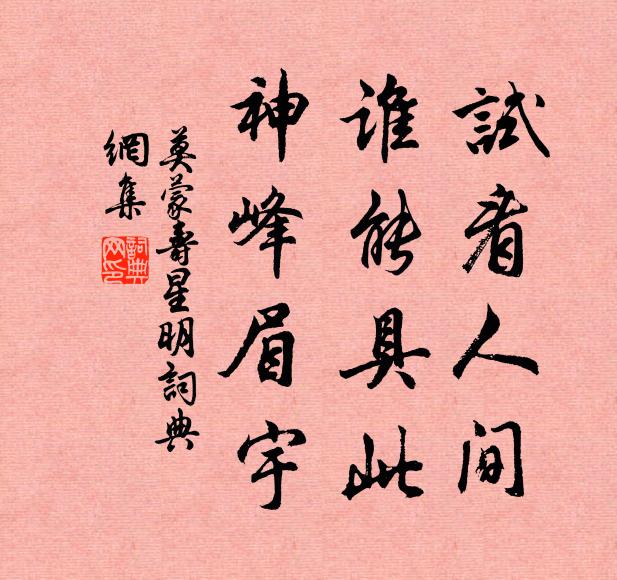 試看人間
誰能具此
神峰眉宇
莫蒙壽星明詞典
網集
詞典網印